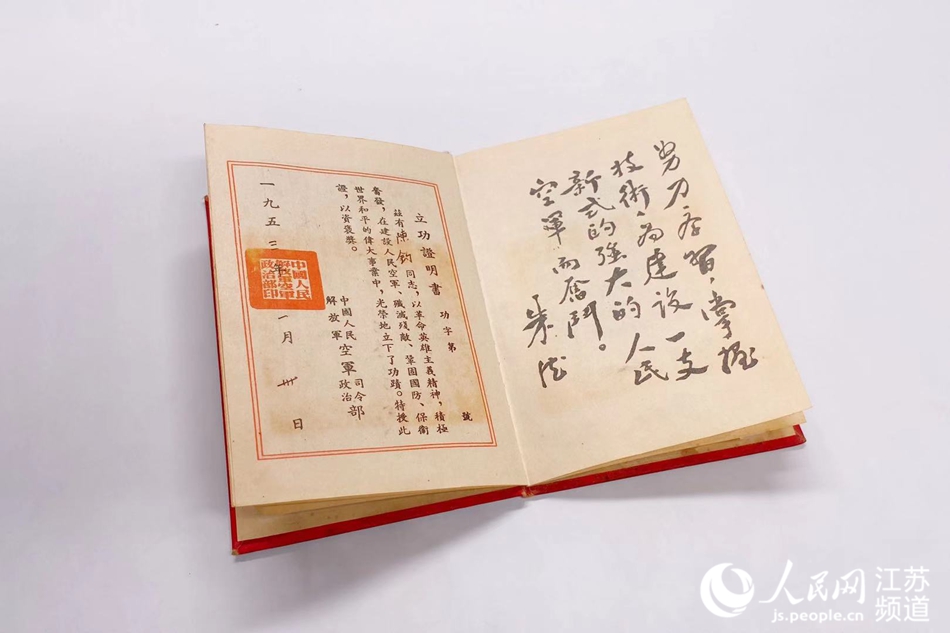 努力学習，掌握
技術，為建設一支
新式的強大的人民
空軍而奮鬥。
朱德
立功證明書 功字第 號
茲有陳鈞同志，以革命英雄主義精神，積極
奮發，在建設人民空軍、殲滅殘敵、鞏固國防、保衛
世界和平的偉大事業中，光榮地立下了功蹟。特授此
證，以資褒獎。
中國人民
解放軍
空軍
司令
政治
部
一九五三年一月卅日
中國人民
解放軍空軍
政治部印
人民网
js.people.cn
江苏
频道